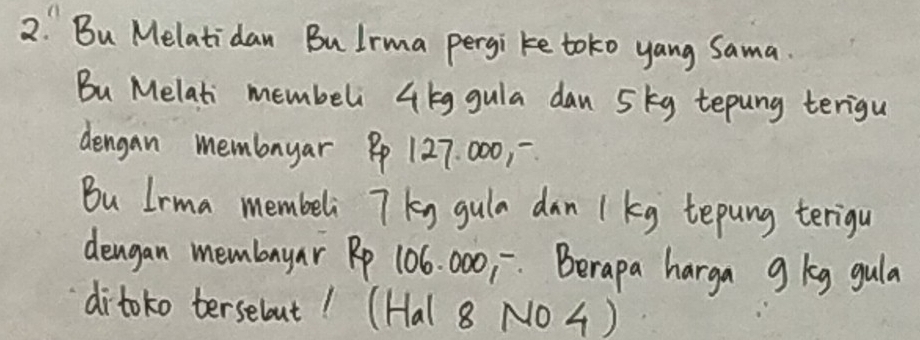 2. Bu Melati dan Bu Irma pergi ke toko yang sama.
Bu Melati membeli 4 kg gula dan 5 kg tepung terigu
dengan membayar Rp 127.000,-.
Bu Irma membeli 7 kg gula dan 1 kg tepung terigu
dengan membayar Rp 106.000,-. Berapa harga 9 kg gula
di toko tersebut ! (Hal 8 NO 4)